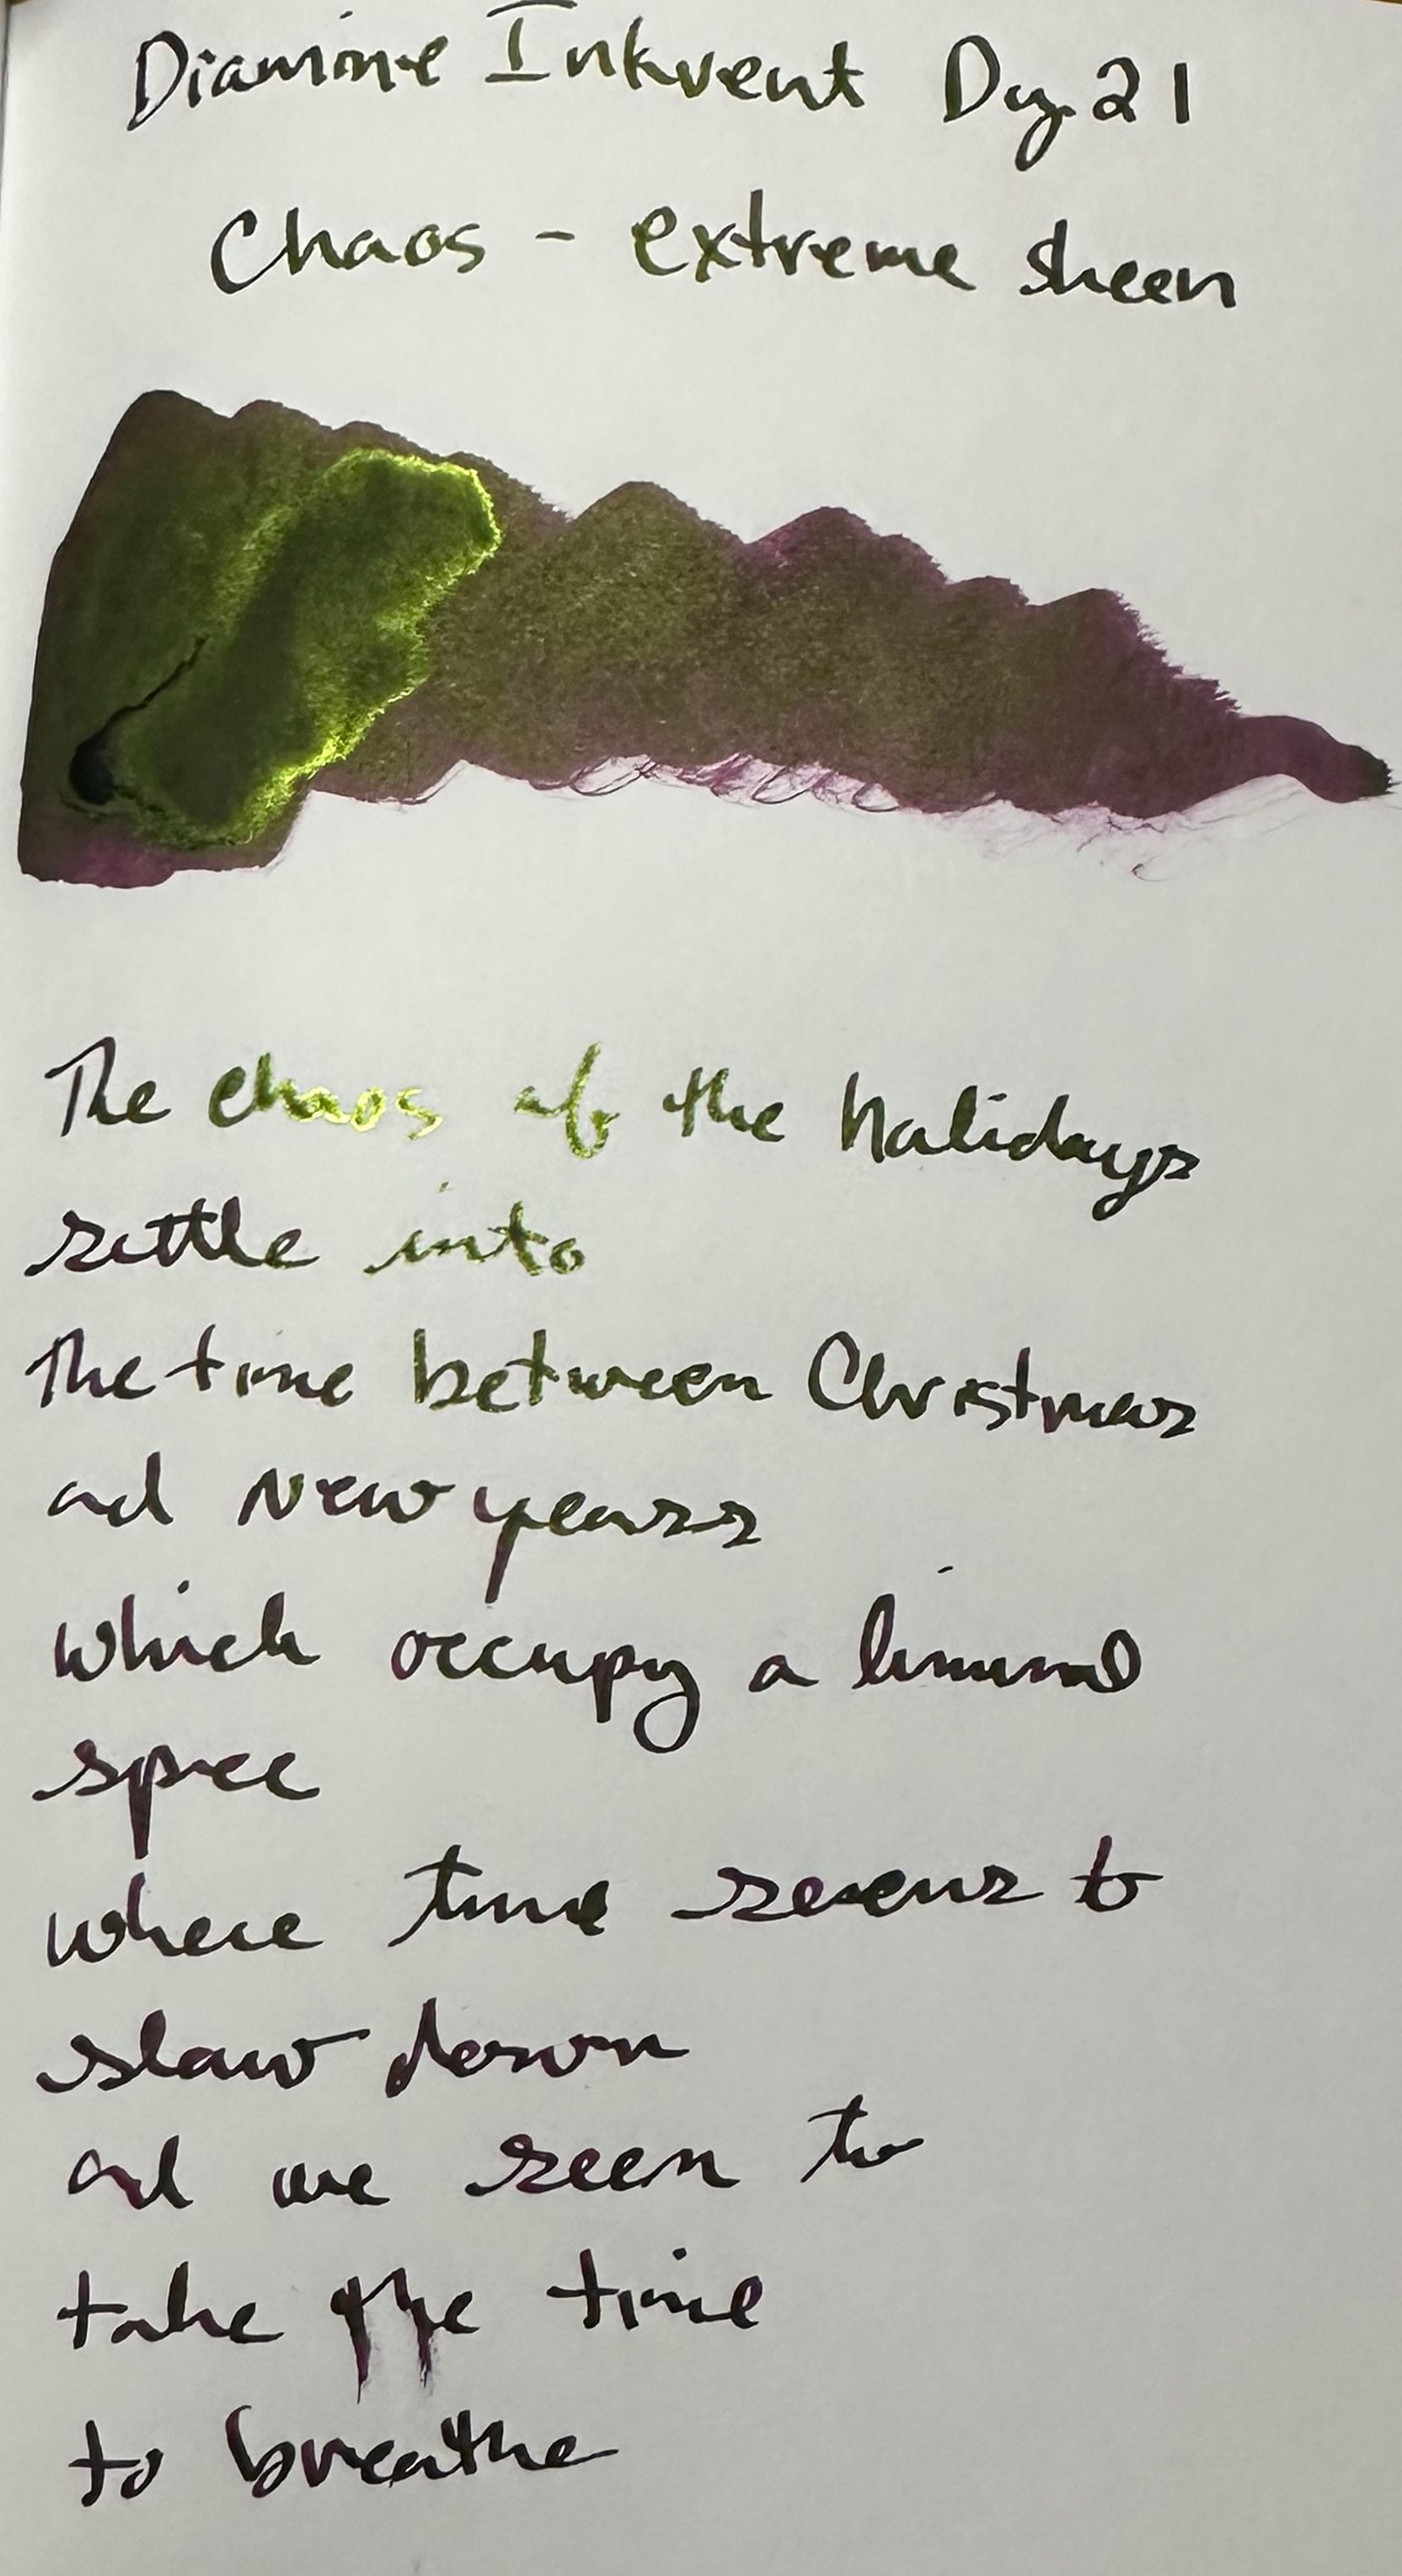 Diamine Inkvent Day 21
Chaos - extreme sheen
The chaos of the holidays
settle into
The time between Christmas
and New years
which occupy a liminal
space
where time seems to
slow down
and we seem to
take the time
to breathe